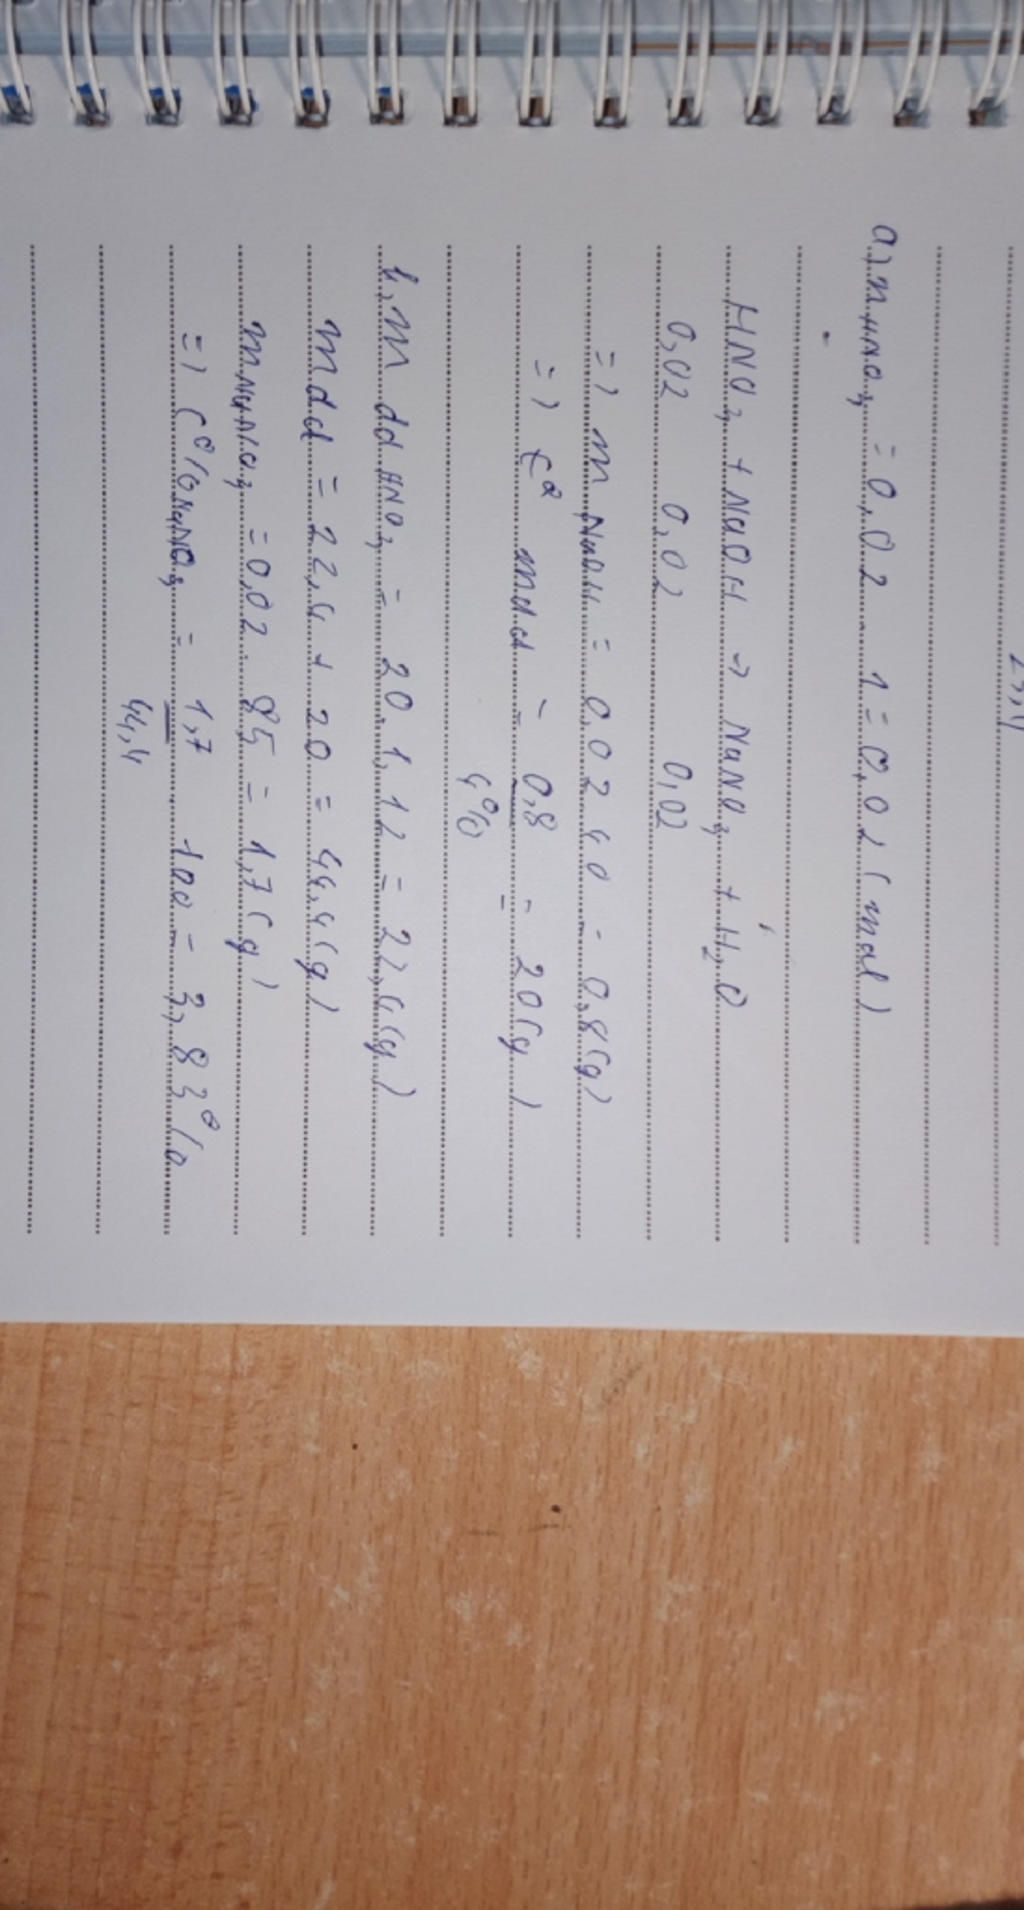 a) nHNO3 = 0,02 . 1 = 0,02 (mol)
HNO3 + NaOH → NaNO3 + H2O
0,02 0,02 0,02
=) m NaOH = 0,02 40 = 0,8(g)
=) mdd = 0,8 / 4% = 20(g)
b, m dd HNO3 = 20.1,12 = 22,4(g)
mdd = 22,4 + 20 = 44,4(g)
mNaNO3 = 0,02. 85 = 1,7(g)
=) C%NaNO3 = 1,7 / 44,4 . 100 = 3,83%